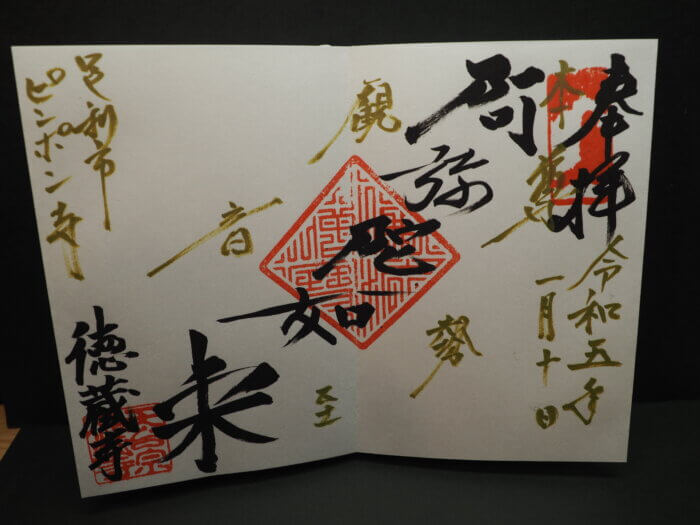 奉拝
令和五年
一月十日
本尊
阿弥陀如来
観音
勢至
足利市
ピンポン寺
徳蔵寺